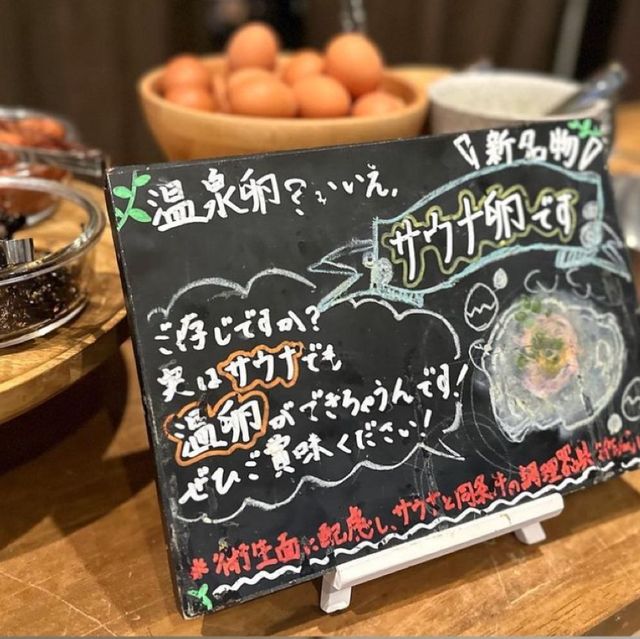 新名物
温泉卵?いいえ、
サウナ卵です
ご存じですか?
実はサウナでも
温卵ができちゃうんです!
ぜひご賞味ください!
*衛生面に配慮し、サウナと同条件の調理器具